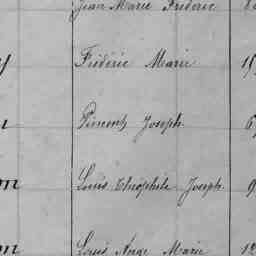 Jean Marie Frédéric
Frédéric Marie 15
Joseph. 6
Louis Théophile Joseph. 9
Louis Ange Marie 12